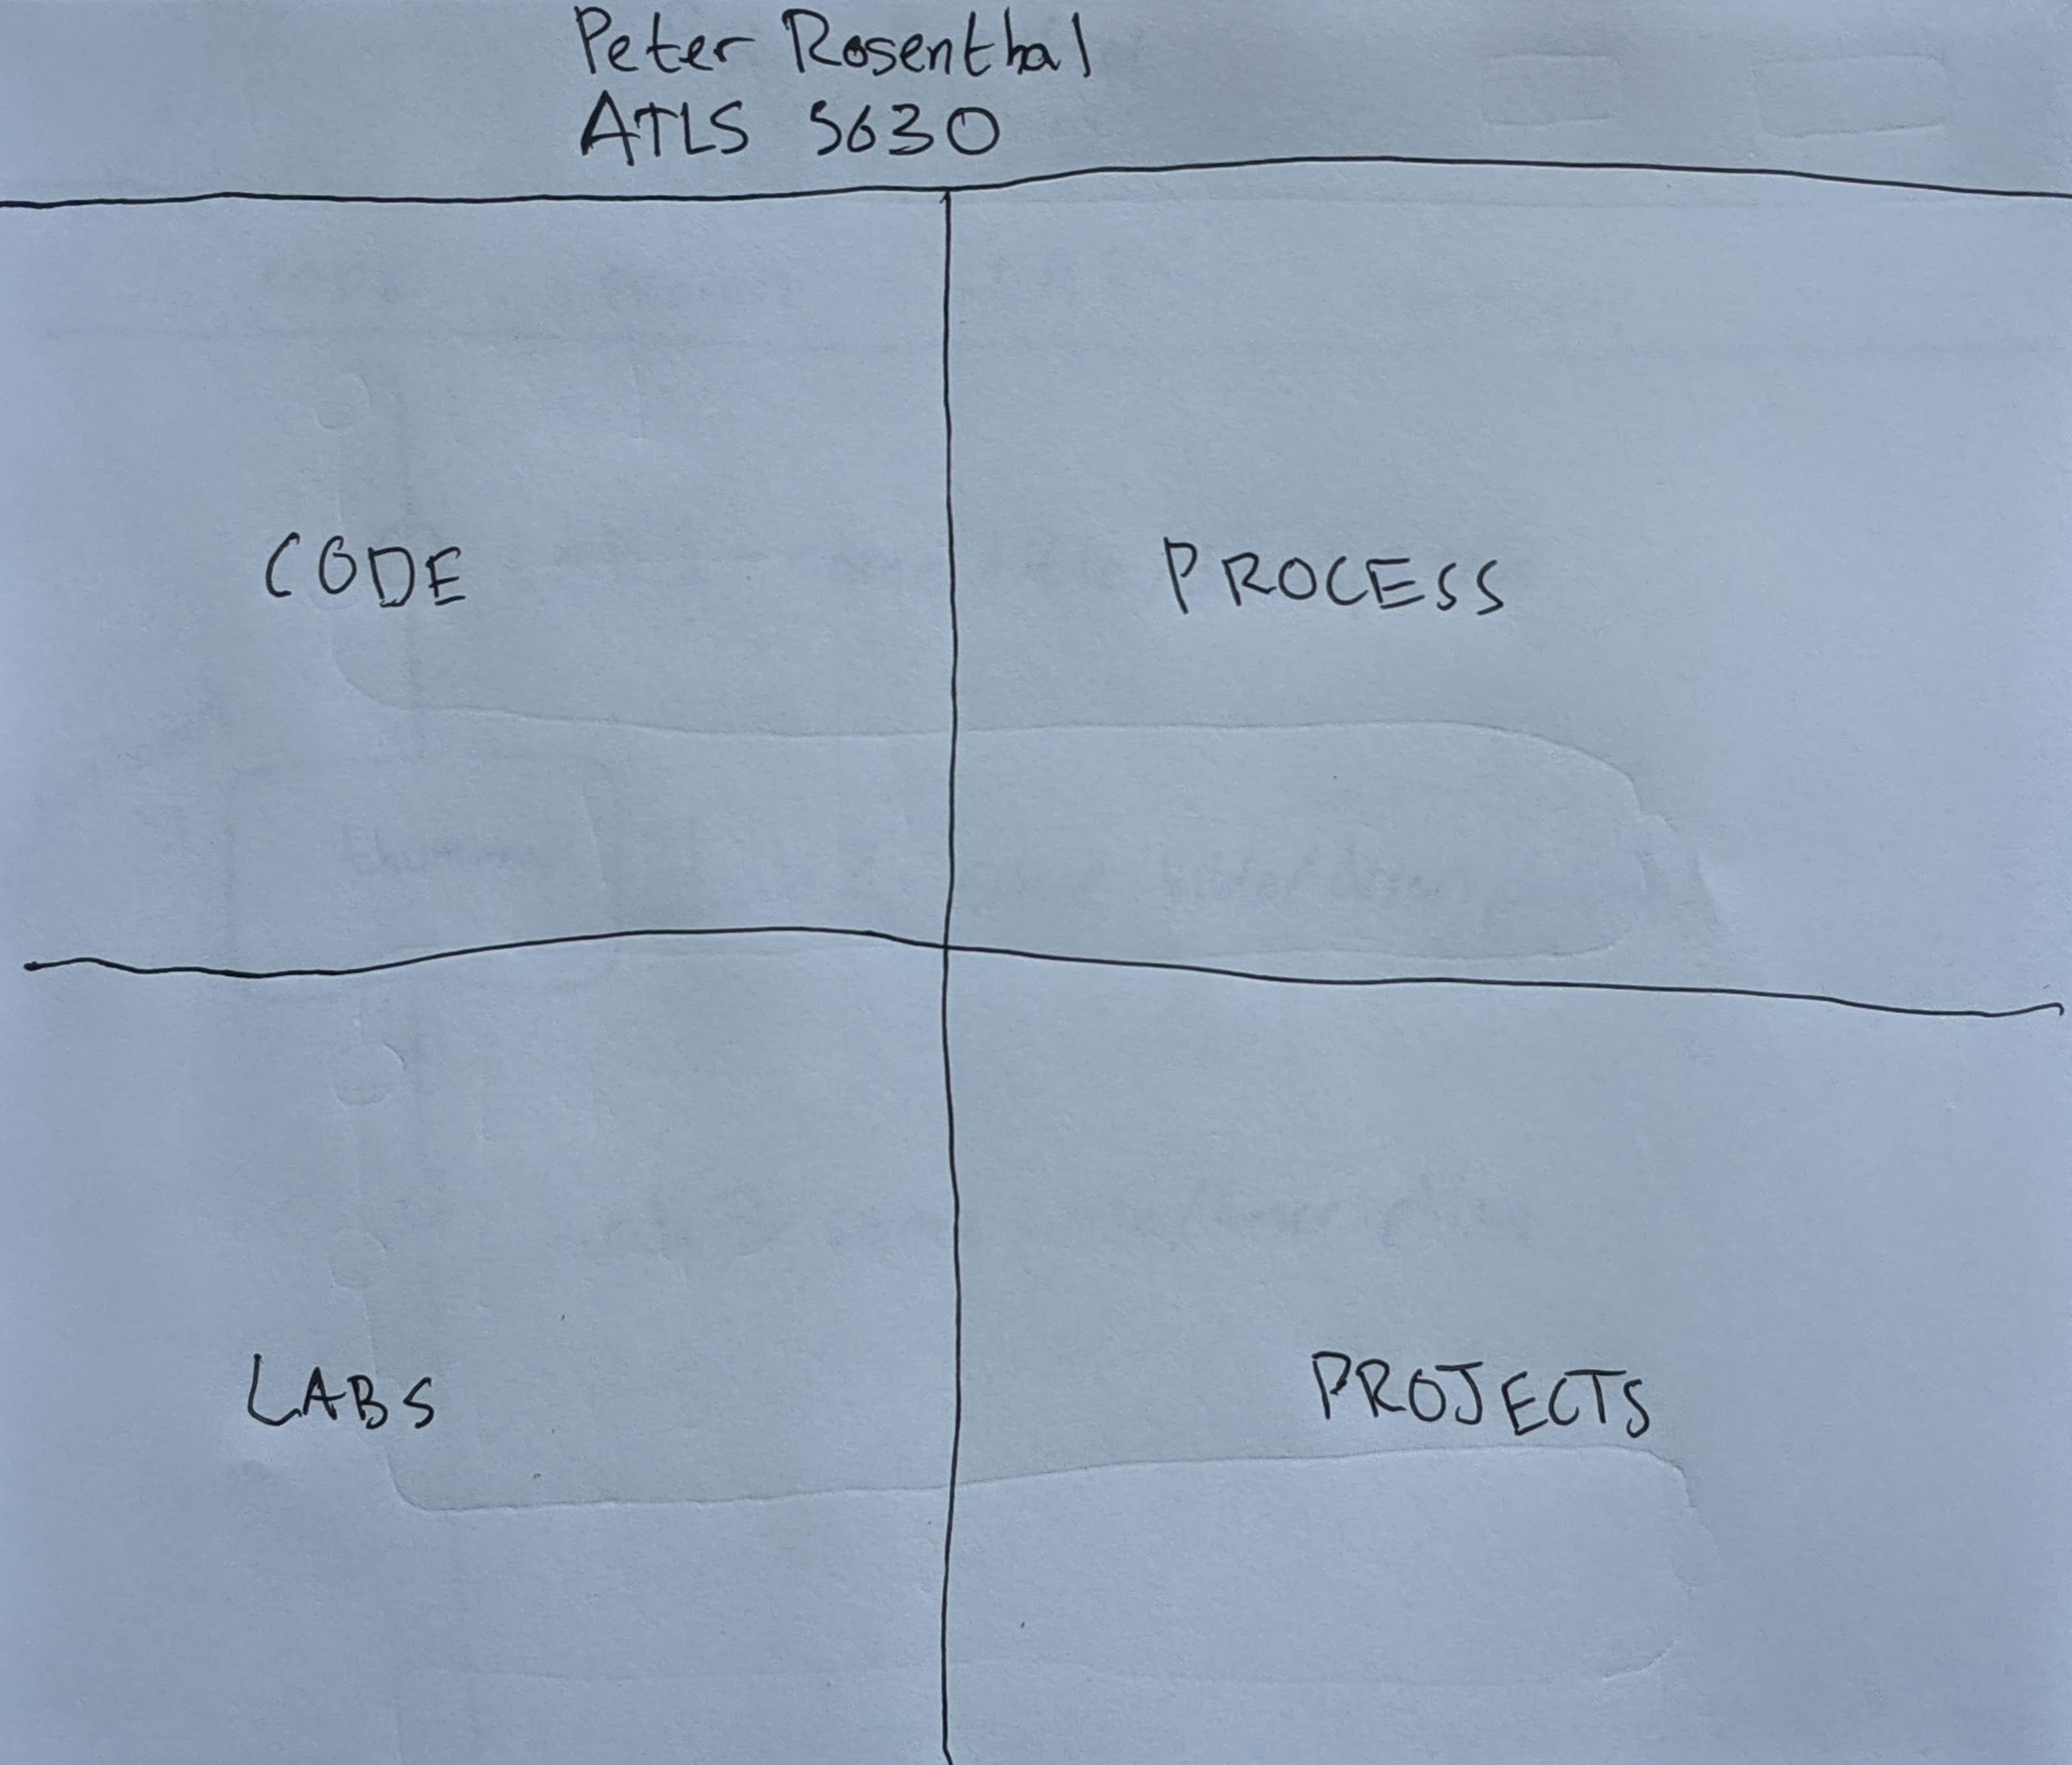 Peter Rosenthal
ATLS 5630
CODE
PROCESS
LABS
PROJECTS